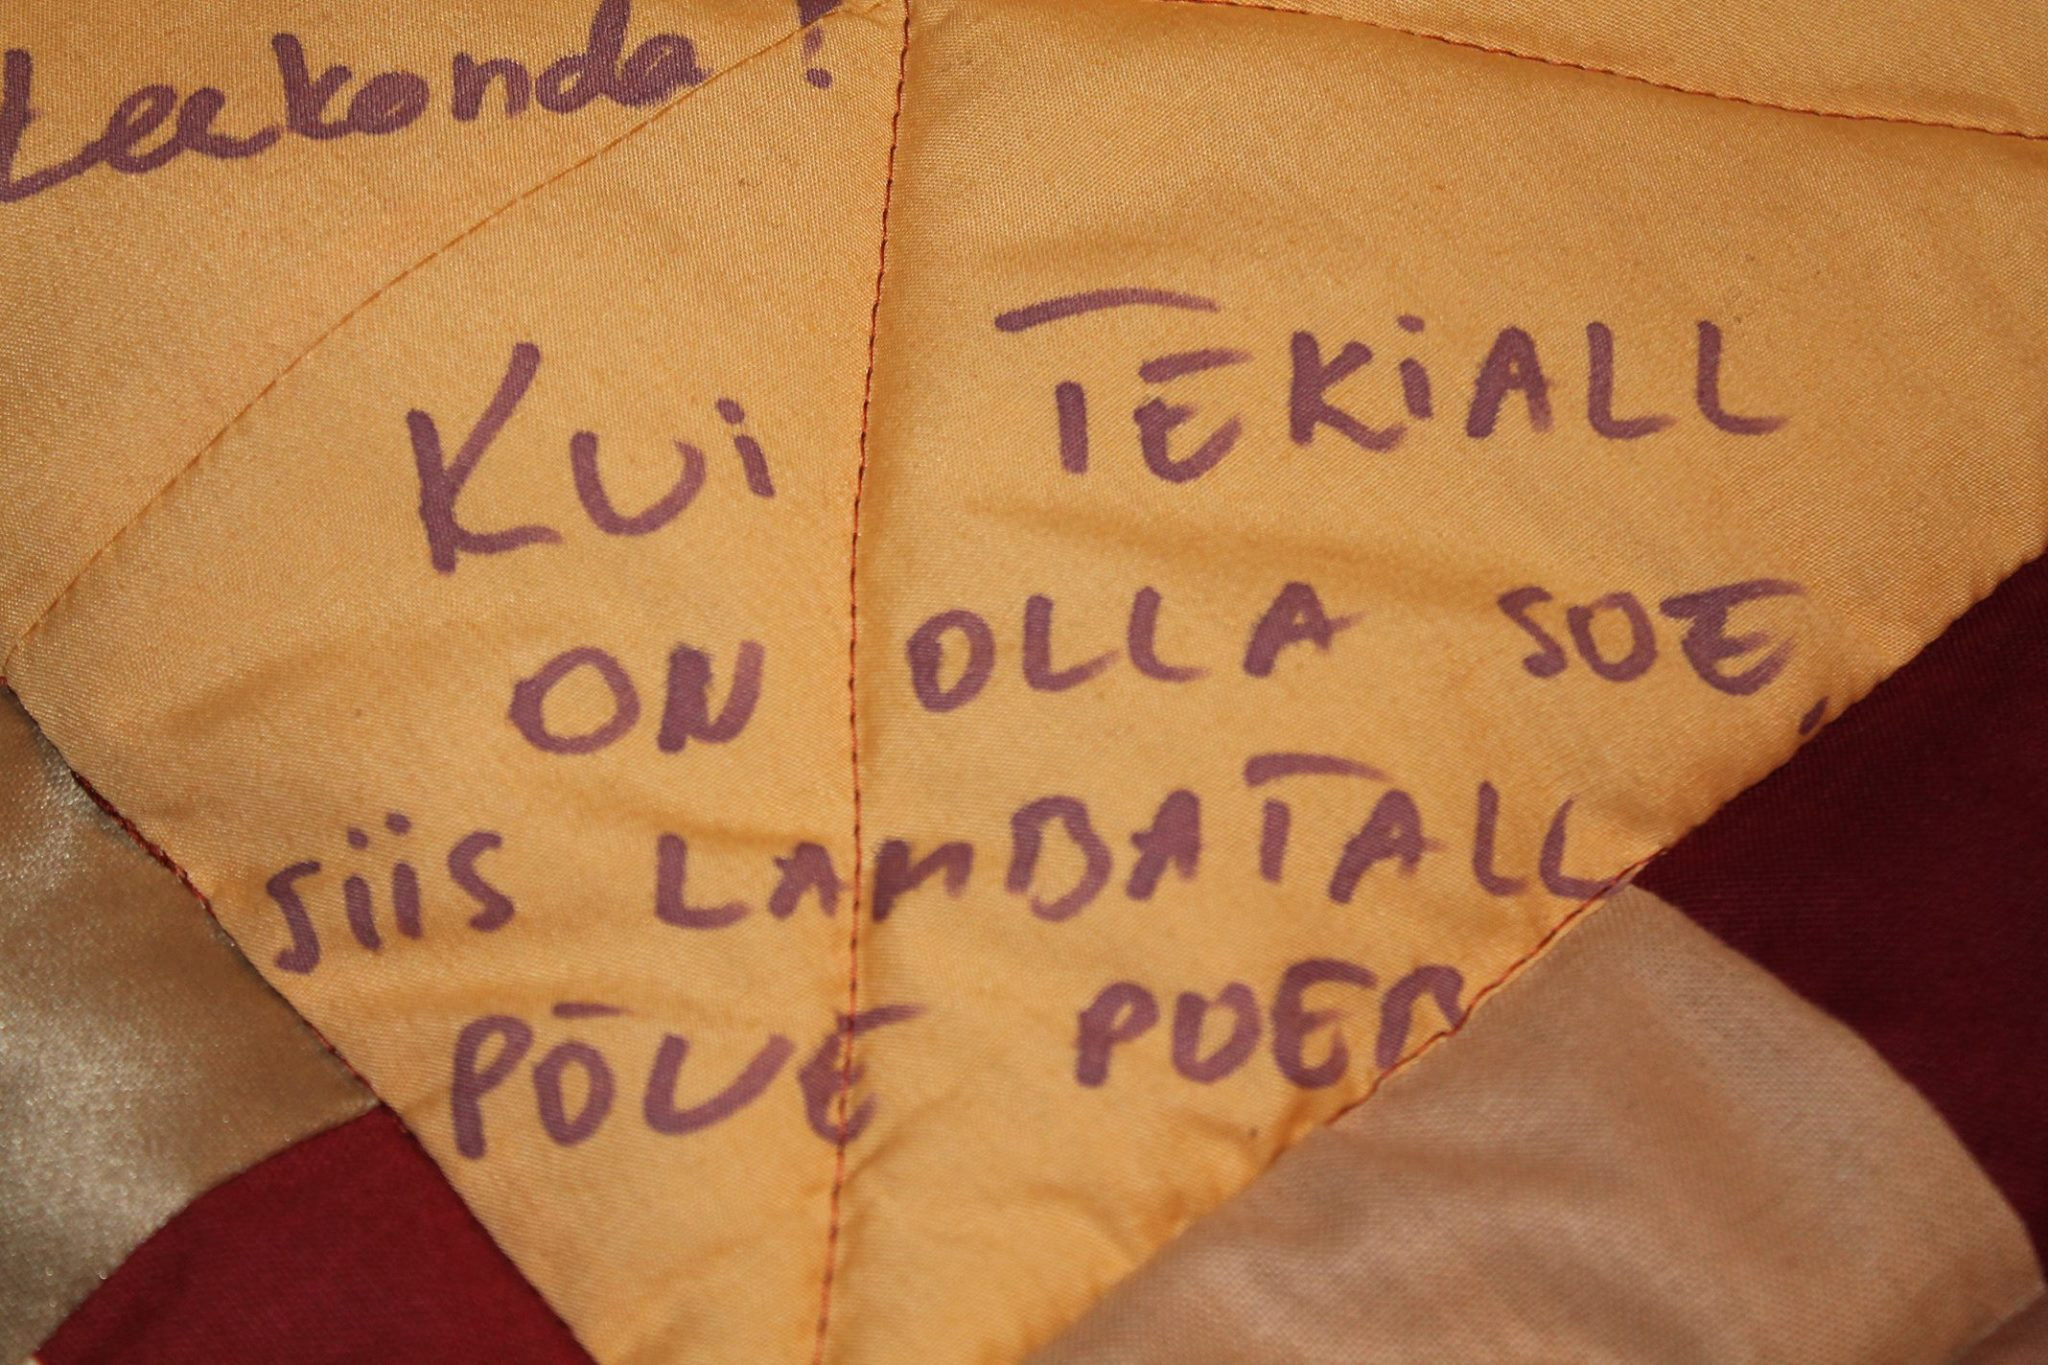 Leekonda!
KUi TEKiALL
ON OLLA SOE,
SiiS LAMBATALL
PÕUE POER